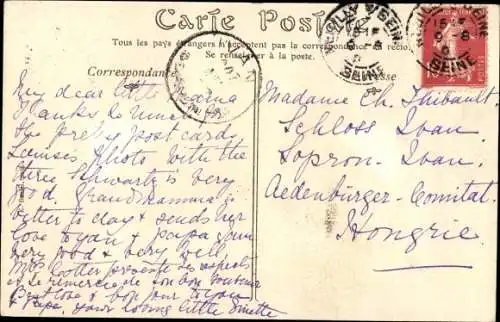 Carte Postale
Tous les pays étrangers n'acceptent pas la correspondance au recto,
Se renseigner à la poste.
Correspondance
Adresse
NEUILLY S/SEINE
SEINE
15
9-8
My dear little Mama
Thanks so much for
the pretty post cards
Louise's photo with the
three Schwartz is very
good, Grandmamma is
better to day & sends her
love to you & papa I am
very good & very well,
présente ses respects
et te remercie de ton bon souvenir
Best love & bon jour to you
& Papa, your loving little Ginette
Madame Ch. Thibault
Schloss Ivan
Sopron-Ivan.
Aedenbürger-Comitat.
Hongrie